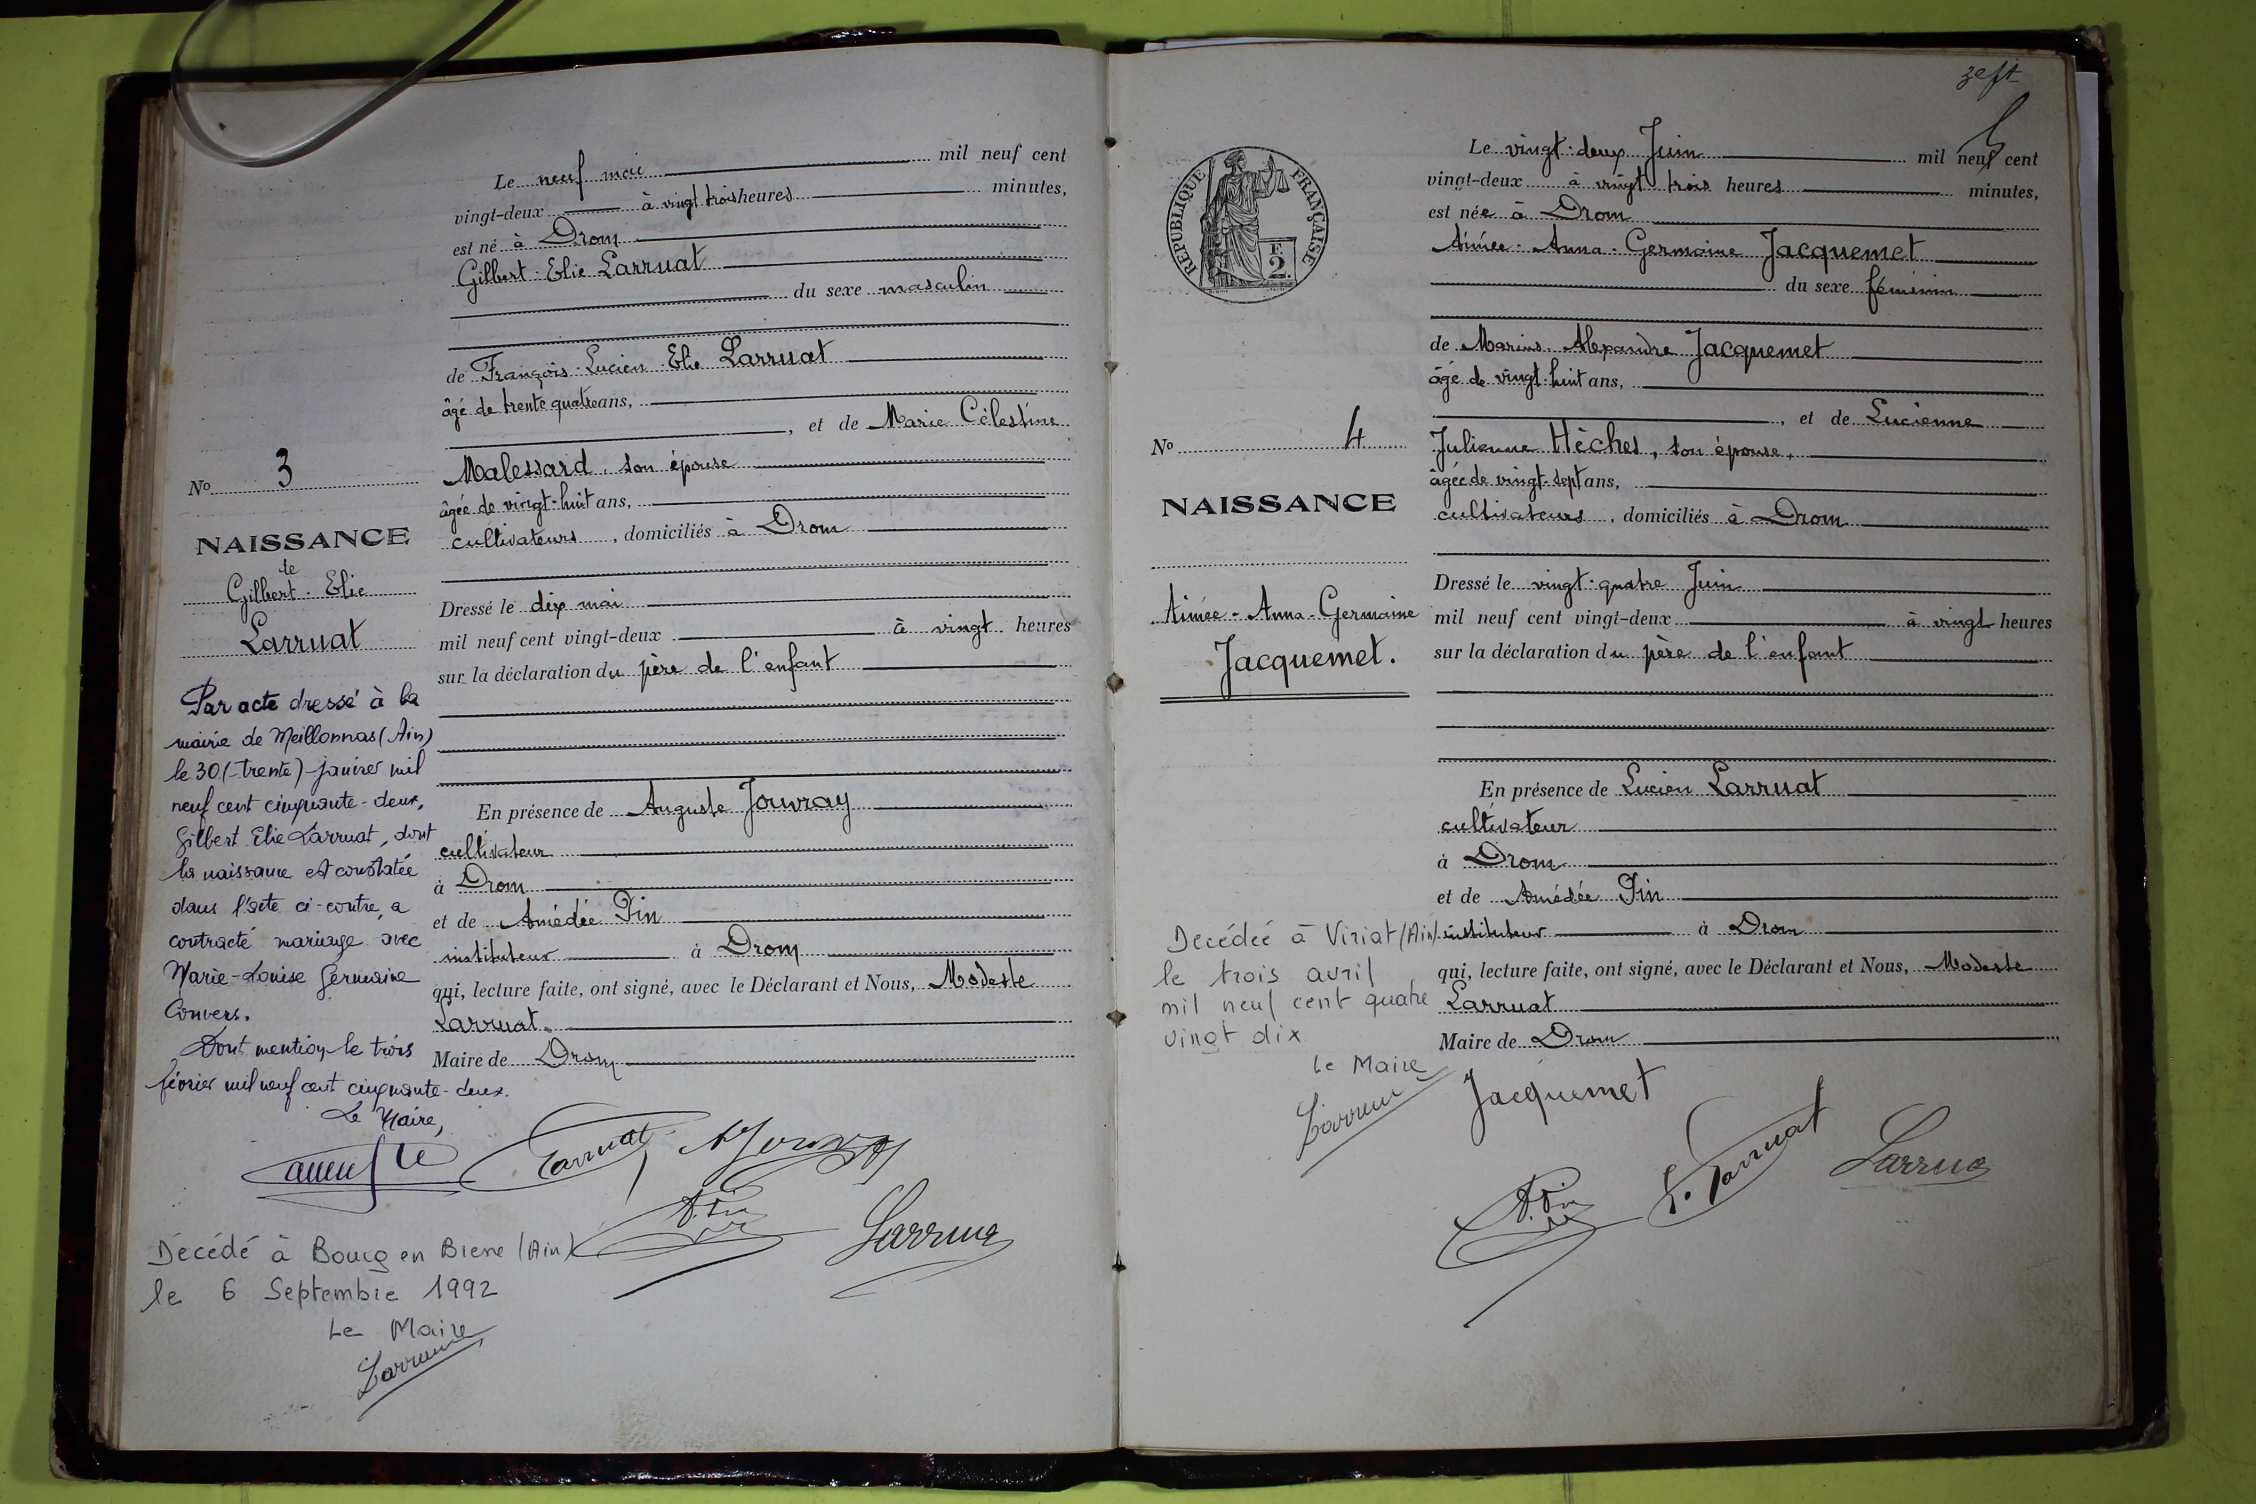 Le neuf mai mil neuf cent
vingt-deux à vingt trois heures minutes,
est né à Drom
Gilbert-Elie Larruat
du sexe masculin
de François-Lucien-Elie Larruat
âgé de trente quatre ans,
, et de Marie Célestine
Malessard, son épouse
âgée de vingt-huit ans,
cultivateurs, domiciliés à Drom
Dressé le dix mai
mil neuf cent vingt-deux à vingt heures
sur la déclaration du père de l'enfant
En présence de Auguste Jouvray
cultivateur
à Drom
et de Amédée Pin
instituteur à Drom
qui, lecture faite, ont signé, avec le Déclarant et Nous, Modeste
Larruat
Maire de Drom
No 3
NAISSANCE
de
Gilbert-Elie
Larruat
Par acte dressé à la
mairie de Meillonnas (Ain)
le 30 (-trente) janvier mil
neuf cent cinquante-deux,
Gilbert Elie Larruat, dont
la naissance est constatée
dans l'acte ci-contre, a
contracté mariage avec
Marie-Louise Germaine
Convers.
Dont mention le trois
février mil neuf cent cinquante-deux.
Le Maire,
Larruat
A. Pin
Larrua
Décédé à Bourg en Bresse (Ain)
le 6 Septembre 1992
Le Maire
3eft
RÉPUBLIQUE FRANÇAISE
2 F.
Le vingt-deux Juin mil neuf cent
vingt-deux à vingt trois heures minutes,
est née à Drom
Aimée-Anna-Germaine Jacquemet
du sexe féminin
de Marius-Alexandre Jacquemet
âgé de vingt-huit ans,
, et de Lucienne
Julienne Hèches, son épouse,
âgée de vingt-sept ans,
cultivateurs, domiciliés à Drom
Dressé le vingt-quatre Juin
mil neuf cent vingt-deux à vingt heures
sur la déclaration du père de l'enfant
En présence de Lucien Larruat
cultivateur
à Drom
et de Amédée Pin
instituteur à Drom
qui, lecture faite, ont signé, avec le Déclarant et Nous, Modeste
Larruat
Maire de Drom
No 4
NAISSANCE
Aimée-Anna-Germaine
Jacquemet.
Decédée à Viriat (Ain)
le trois avril
mil neuf cent quatre
vingt dix
Le Maire
Jacquemet
A. Pin
L. Larruat
Larrua